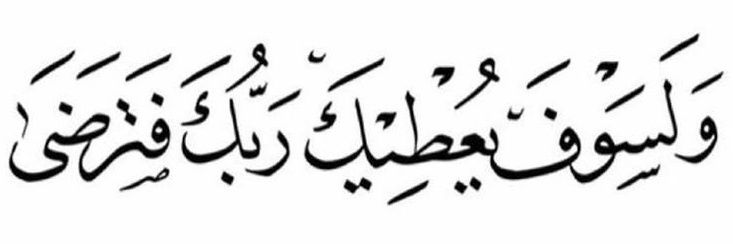 وَلَسَوْفَ يُعْطِيْكَ رَبُّكَ فَتَرْضَىٰ